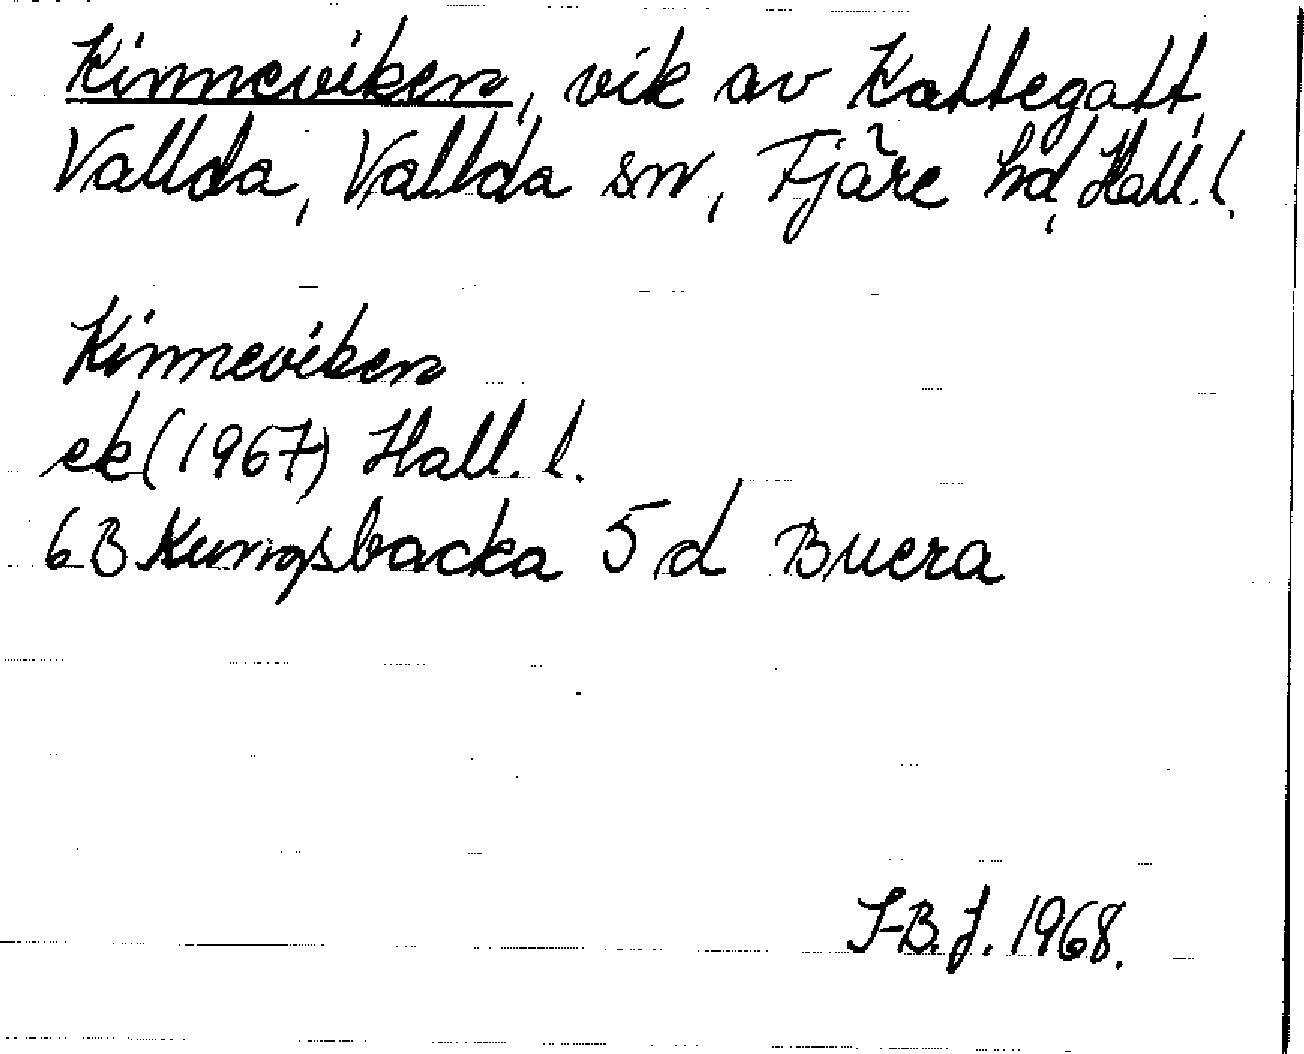 Kinneviken, vik av Kattegatt,
Vallda, Vallda sn, Fjäre hd, Hall. l.
Kinneviken
ek (1967) Hall. l.
6B Kungsbacka 5d Buera
I-B. J. 1968.